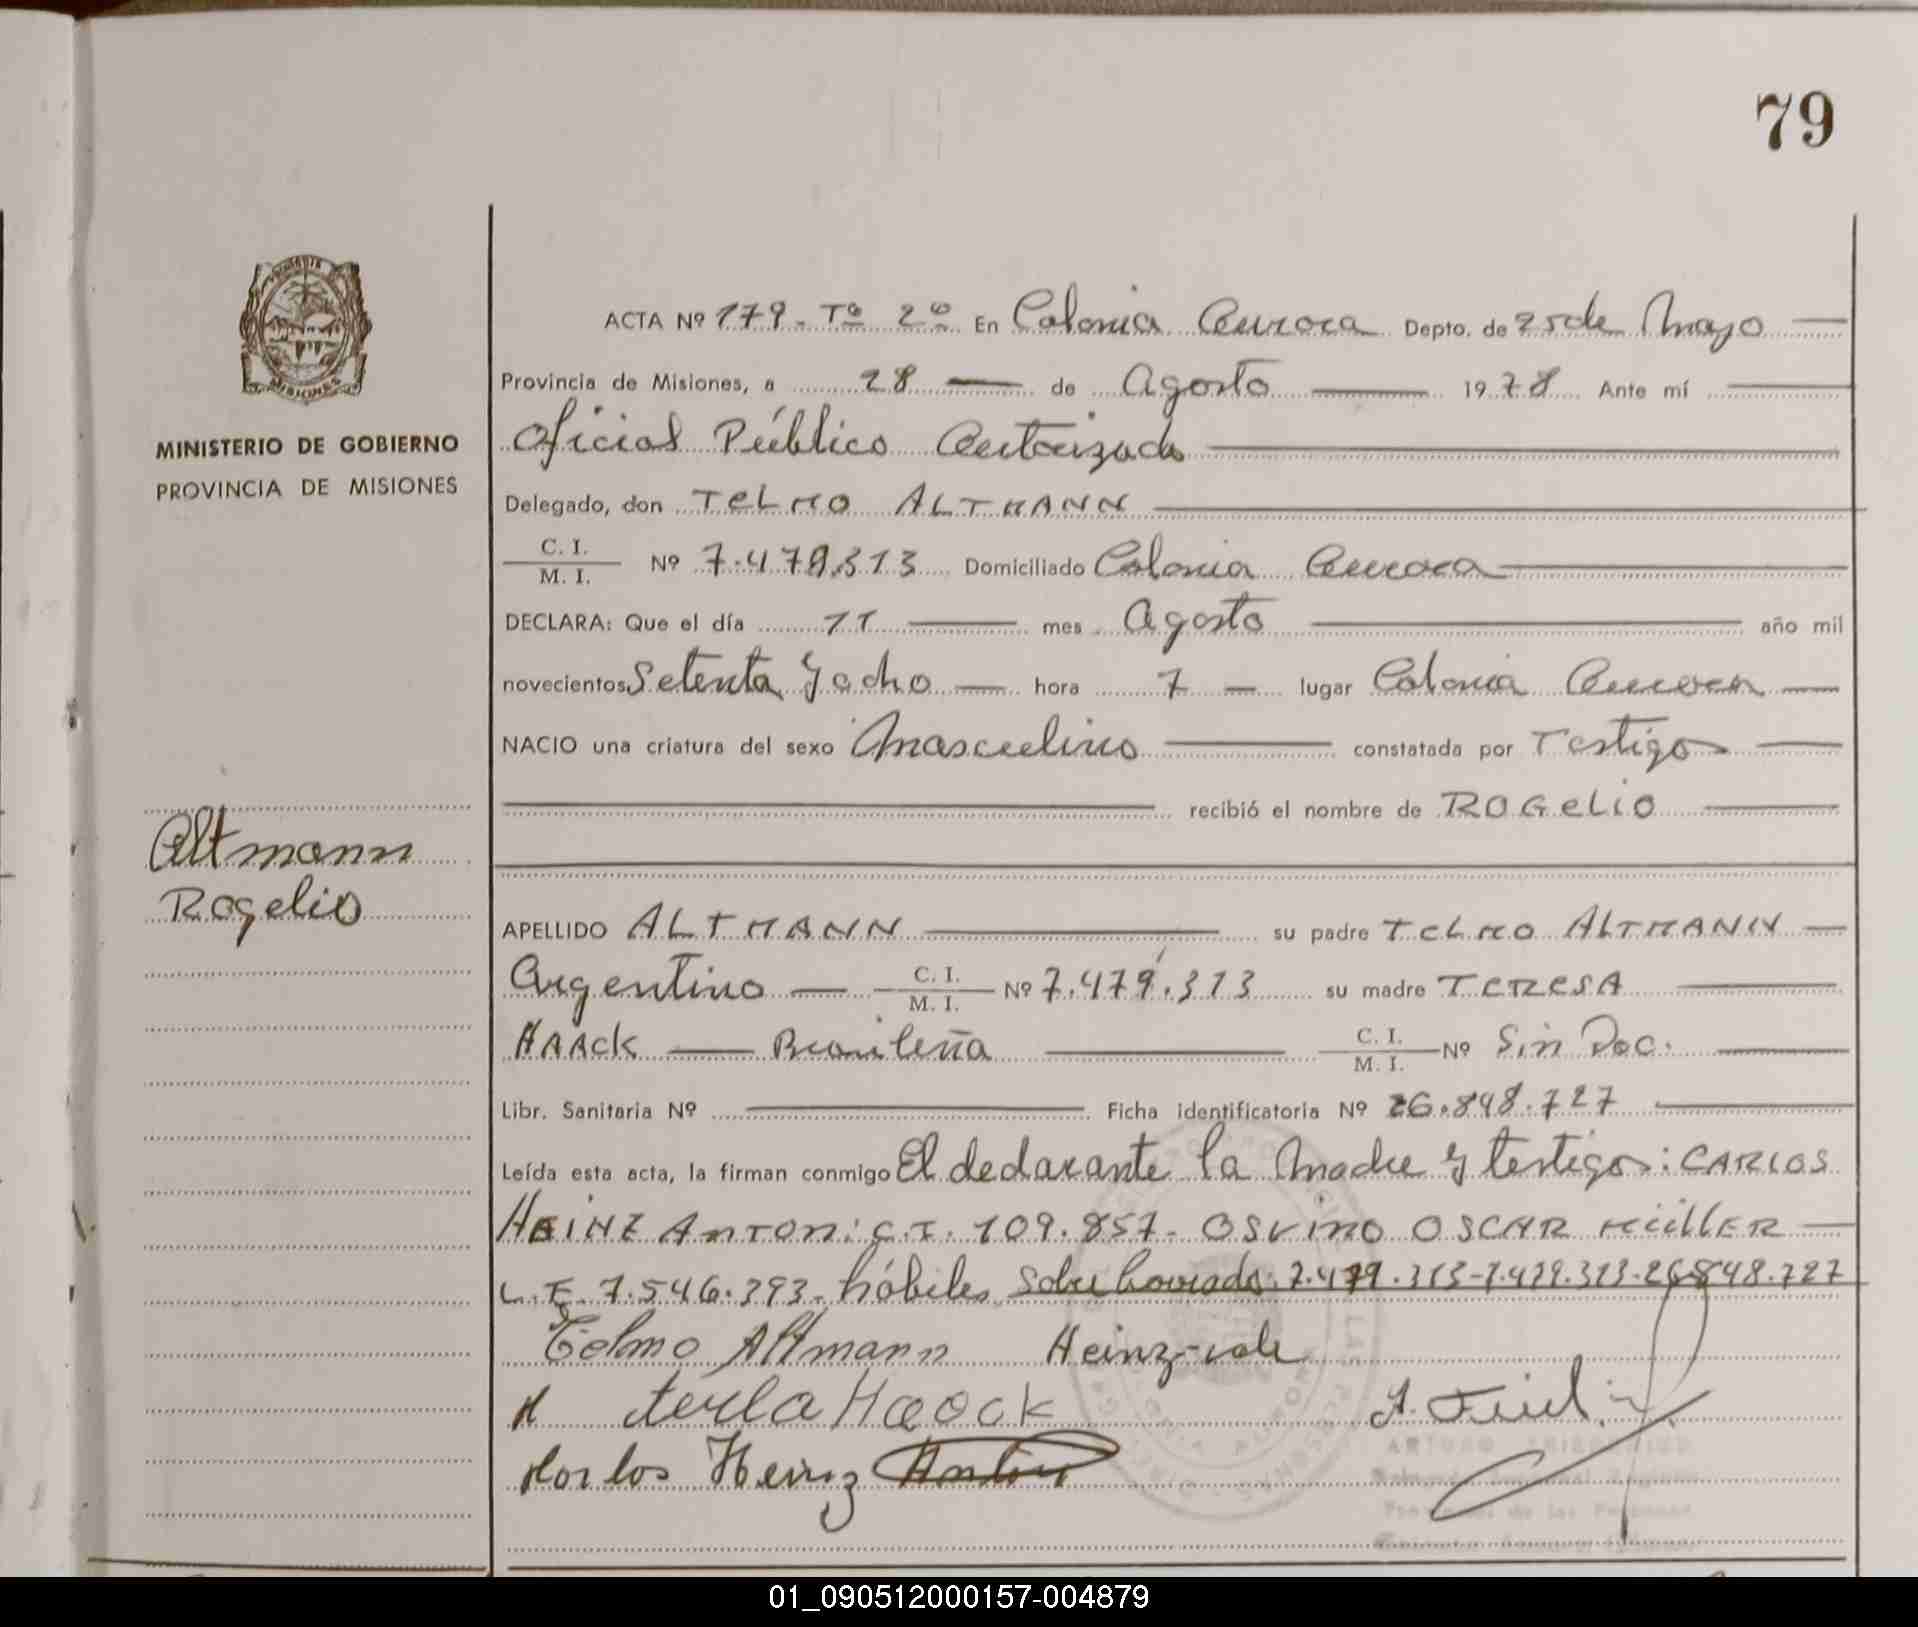 79
MINISTERIO DE GOBIERNO
PROVINCIA DE MISIONES
Altmann
Rogelio
ACTA Nº 179 - Tº 2º En Colonia Aurora Depto. de 25 de Mayo
Provincia de Misiones, a 28 de Agosto 1978 Ante mí
Oficial Público Autorizado
Delegado, don TELMO ALTMANN
C. I. / M. I. Nº 7.479.313 Domiciliado Colonia Aurora
DECLARA: Que el día 11 mes Agosto año mil
novecientos Setenta y ocho hora 7 lugar Colonia Aurora
NACIO una criatura del sexo Masculino constatada por Testigos
recibió el nombre de ROGELIO
APELLIDO ALTMANN su padre TELMO ALTMANN
Argentino C. I. / M. I. Nº 7.479.313 su madre TERESA
HAACK Brasileña C. I. / M. I. Nº Sin Doc.
Libr. Sanitaria Nº Ficha identificatoria Nº 26.848.727
Leída esta acta, la firman conmigo El declarante la Madre y testigos: CARLOS
HEINZ ANTON: C.I. 109.857- OSVINO OSCAR MÜLLER
L.E. 7.546.393- hábiles. Sobre borrado: 7.479.313-7.479.313-26.848.727
Telmo Altmann
Haack
Heinz Anton
01_090512000157-004879